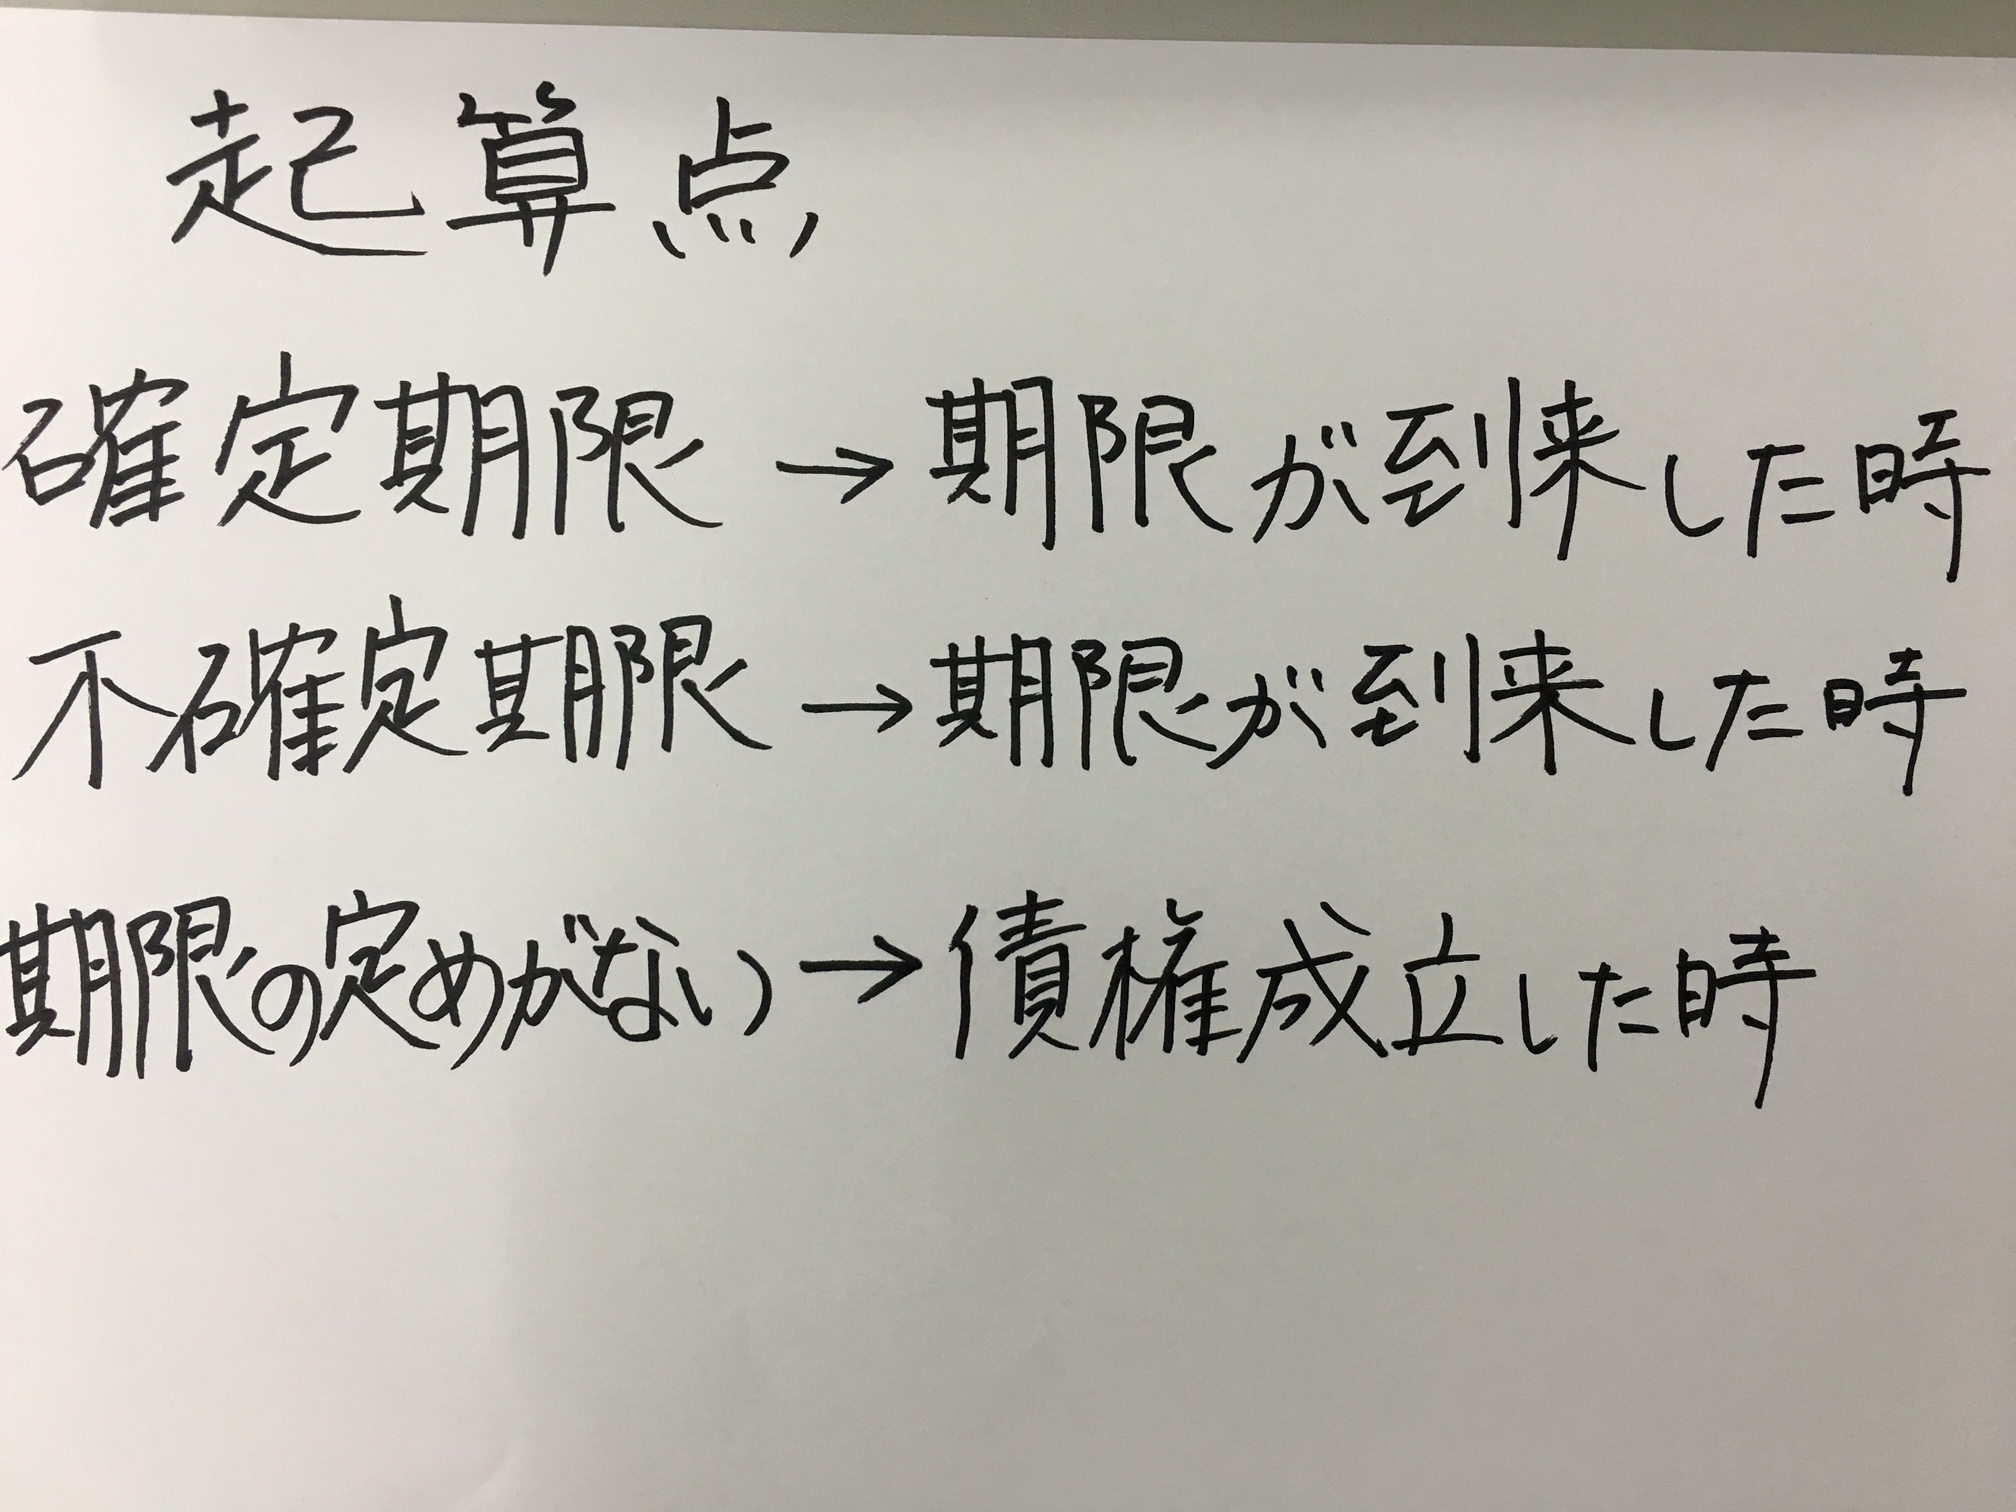 起算点
確定期限→期限が到来した時
不確定期限→期限が到来した時
期限の定めがない→債権成立した時